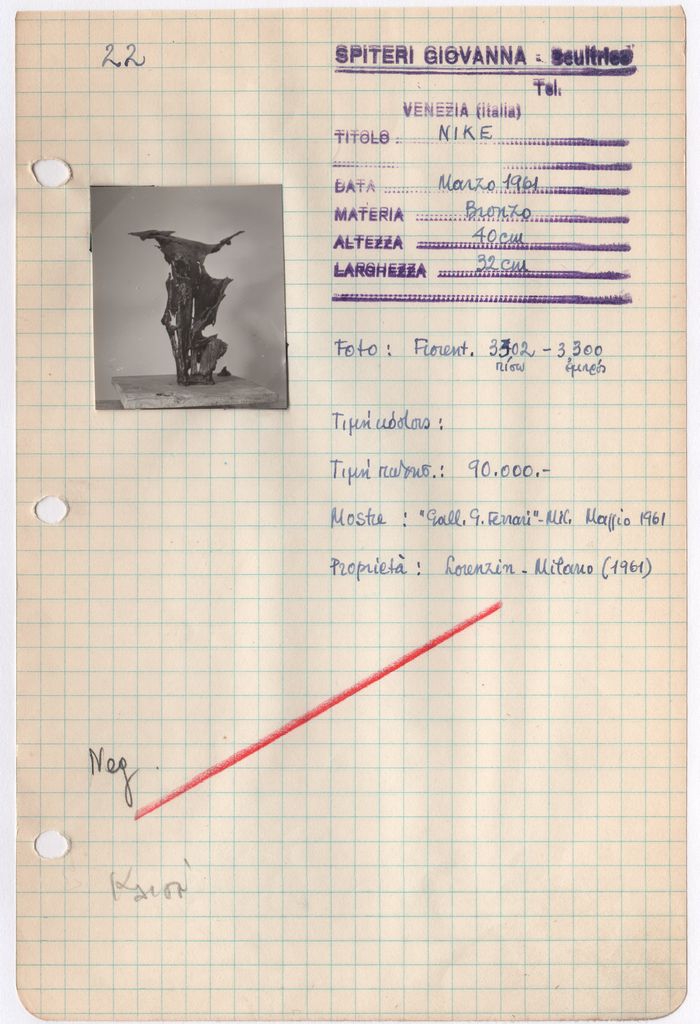 22
SPITERI GIOVANNA - Scultrice
Tel.
VENEZIA (Italia)
TITOLO NIKE
DATA Marzo 1961
MATERIA Bronzo
ALTEZZA 40 cm
LARGHEZZA 32 cm
Foto : Fiorent. 3302 - 3300
πίσω ἐμπρός
Τιμή κόστους :
Τιμή :  90.000.-
Mostre : "Gall. G. Ferrari" - Mil. Maggio 1961
Proprietà : Lorenzin - Milano (1961)
Neg